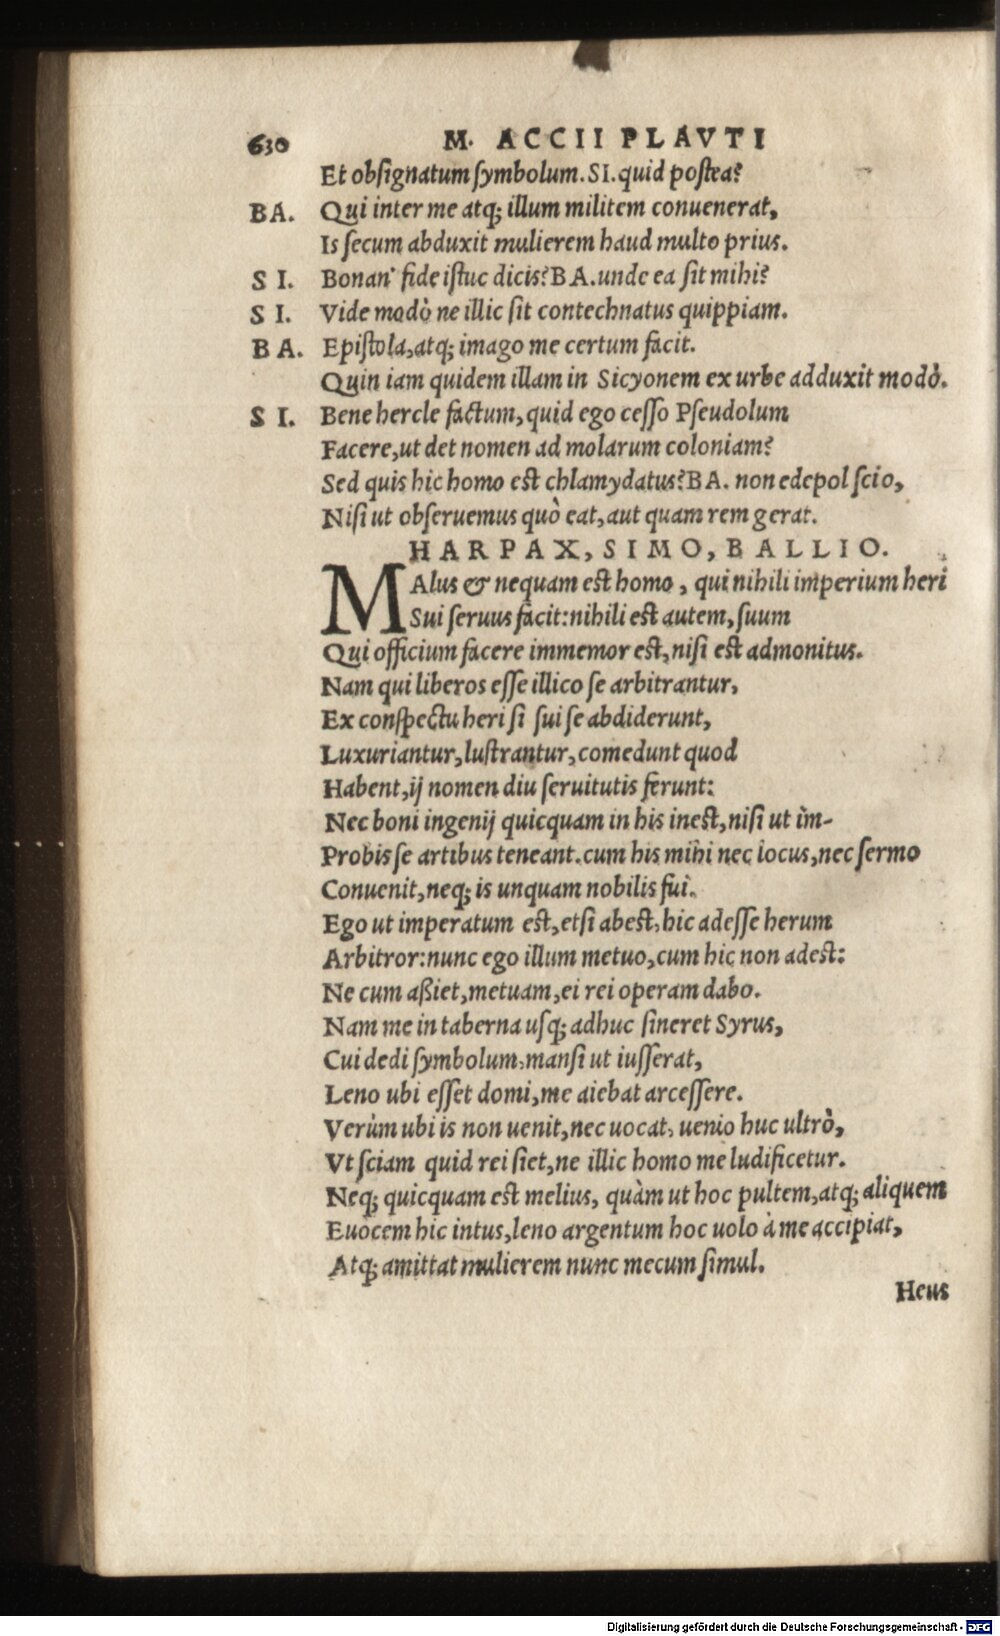 630 M. ACCII PLAVTI
Et obsignatum symbolum. SI. quid postea?
BA. Qui inter me atq; illum militem conuenerat,
Is secum abduxit mulierem haud multo prius.
SI. Bonan' fide istuc dicis? BA. unde ea sit mihi?
SI. Vide modò ne illic sit contechnatus quippiam.
BA. Epistola, atq; imago me certum facit.
Quin iam quidem illam in Sicyonem ex urbe adduxit modò.
SI. Bene hercle factum, quid ego cesso Pseudolum
Facere, ut det nomen ad molarum coloniam?
Sed quis hic homo est chlamydatus? BA. non edepol scio,
Nisi ut obseruemus quò eat, aut quam rem gerat.
HARPAX, SIMO, BALLIO.
MAlus & nequam est homo, qui nihili imperium heri
Sui seruus facit: nihili est autem, suum
Qui officium facere immemor est, nisi est admonitus.
Nam qui liberos esse illico se arbitrantur,
Ex conspectu heri si sui se abdiderunt,
Luxuriantur, lustrantur, comedunt quod
Habent, ij nomen diu seruitutis ferunt:
Nec boni ingenij quicquam in his inest, nisi ut im-
Probis se artibus teneant. cum his mihi nec locus, nec sermo
Conuenit, neq; is unquam nobilis fui.
Ego ut imperatum est, etsi abest, hic adesse herum
Arbitror: nunc ego illum metuo, cum hic non adest:
Ne cum aßiet, metuam, ei rei operam dabo.
Nam me in taberna usq; adhuc sineret Syrus,
Cui dedi symbolum, mansi ut iusserat,
Leno ubi esset domi, me aiebat arcessere.
Verùm ubi is non uenit, nec uocat, uenio huc ultrò,
Vt sciam quid rei siet, ne illic homo me ludificetur.
Neq; quicquam est melius, quàm ut hoc pultem, atq; aliquem
Euocem hic intus, leno argentum hoc uolo à me accipiat,
Atq; amittat mulierem nunc mecum simul.
Heus
Digitalisierung gefördert durch die Deutsche Forschungsgemeinschaft - DFG